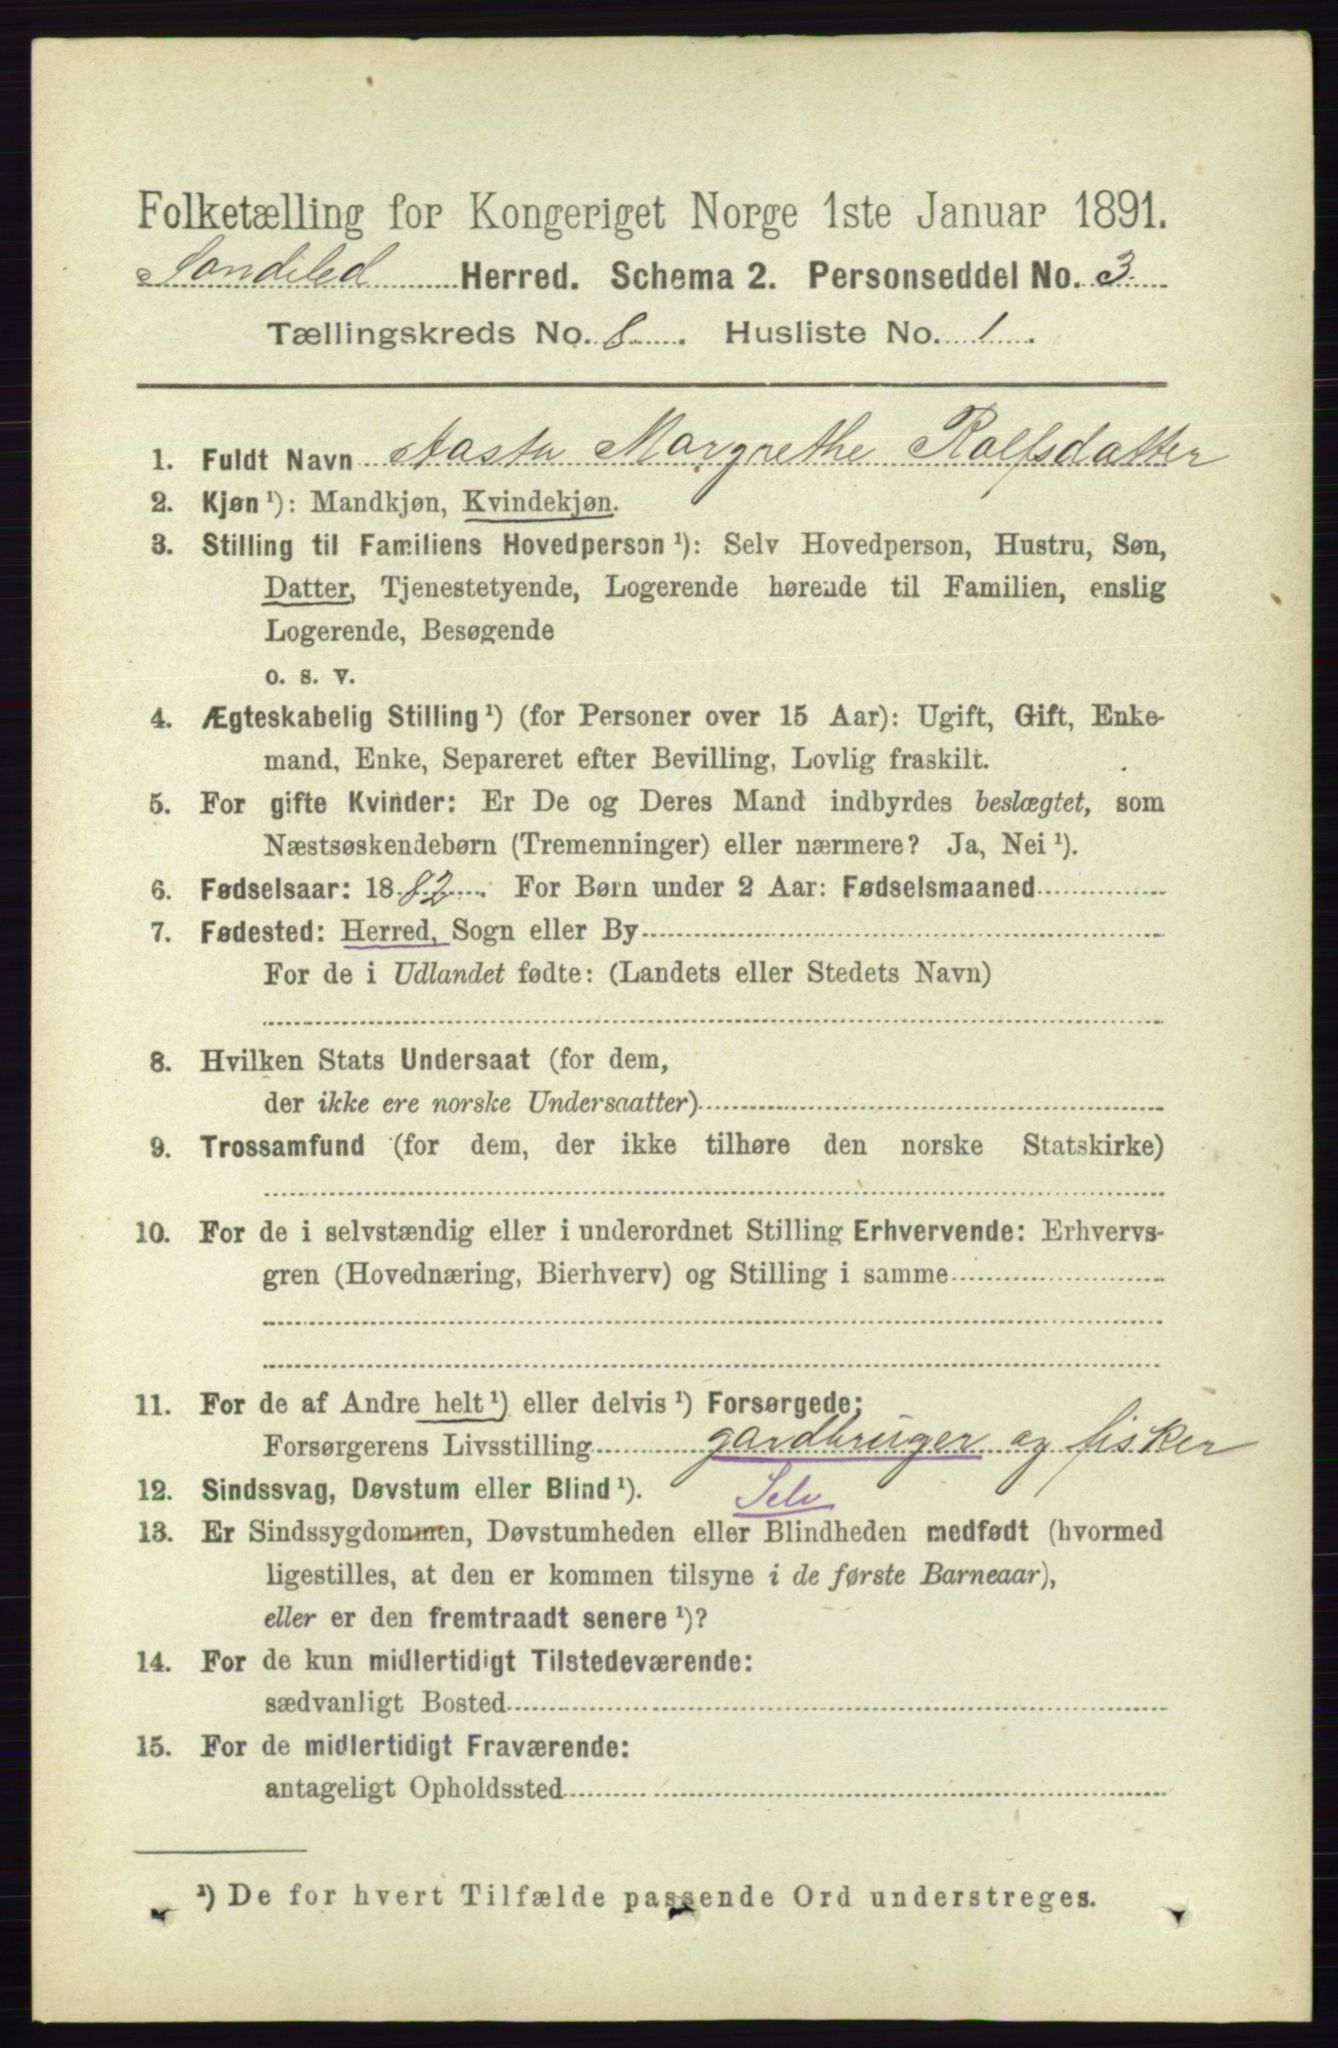 Folketælling for Kongeriget Norge 1ste Januar 1891.
Søndeled Herred. Schema 2. Personseddel No. 3
Tællingskreds No. 8. Husliste No. 1.
1. Fuldt Navn Aasta Margrethe Rolfsdatter
2. Kjøn ¹): Mandkjøn, Kvindekjøn.
3. Stilling til Familiens Hovedperson ¹): Selv Hovedperson, Hustru, Søn,
Datter, Tjenestetyende, Logerende hørende til Familien, enslig
Logerende, Besøgende
o. s. v.
4. Ægteskabelig Stilling ¹) (for Personer over 15 Aar): Ugift, Gift, Enke-
mand, Enke, Separeret efter Bevilling, Lovlig fraskilt.
5. For gifte Kvinder: Er De og Deres Mand indbyrdes beslægtet, som
Næstsøskendebørn (Tremenninger) eller nærmere? Ja, Nei ¹).
6. Fødselsaar: 1882. For Børn under 2 Aar: Fødselsmaaned
7. Fødested: Herred, Sogn eller By
For de i Udlandet fødte: (Landets eller Stedets Navn)
8. Hvilken Stats Undersaat (for dem,
der ikke ere norske Undersaatter)
9. Trossamfund (for dem, der ikke tilhøre den norske Statskirke)
10. For de i selvstændig eller i underordnet Stilling Erhvervende: Erhvervs-
gren (Hovednæring, Bierhverv) og Stilling i samme
11. For de af Andre helt ¹) eller delvis ¹) Forsørgede:
Forsørgerens Livsstilling gardbruger og fisker
12. Sindssvag, Døvstum eller Blind ¹). Selv
13. Er Sindssygdommen, Døvstumheden eller Blindheden medfødt (hvormed
ligestilles, at den er kommen tilsyne i de første Barneaar),
eller er den fremtraadt senere ¹)?
14. For de kun midlertidigt Tilstedeværende:
sædvanligt Bosted
15. For de midlertidigt Fraværende:
antageligt Opholdssted
¹) De for hvert Tilfælde passende Ord understreges.